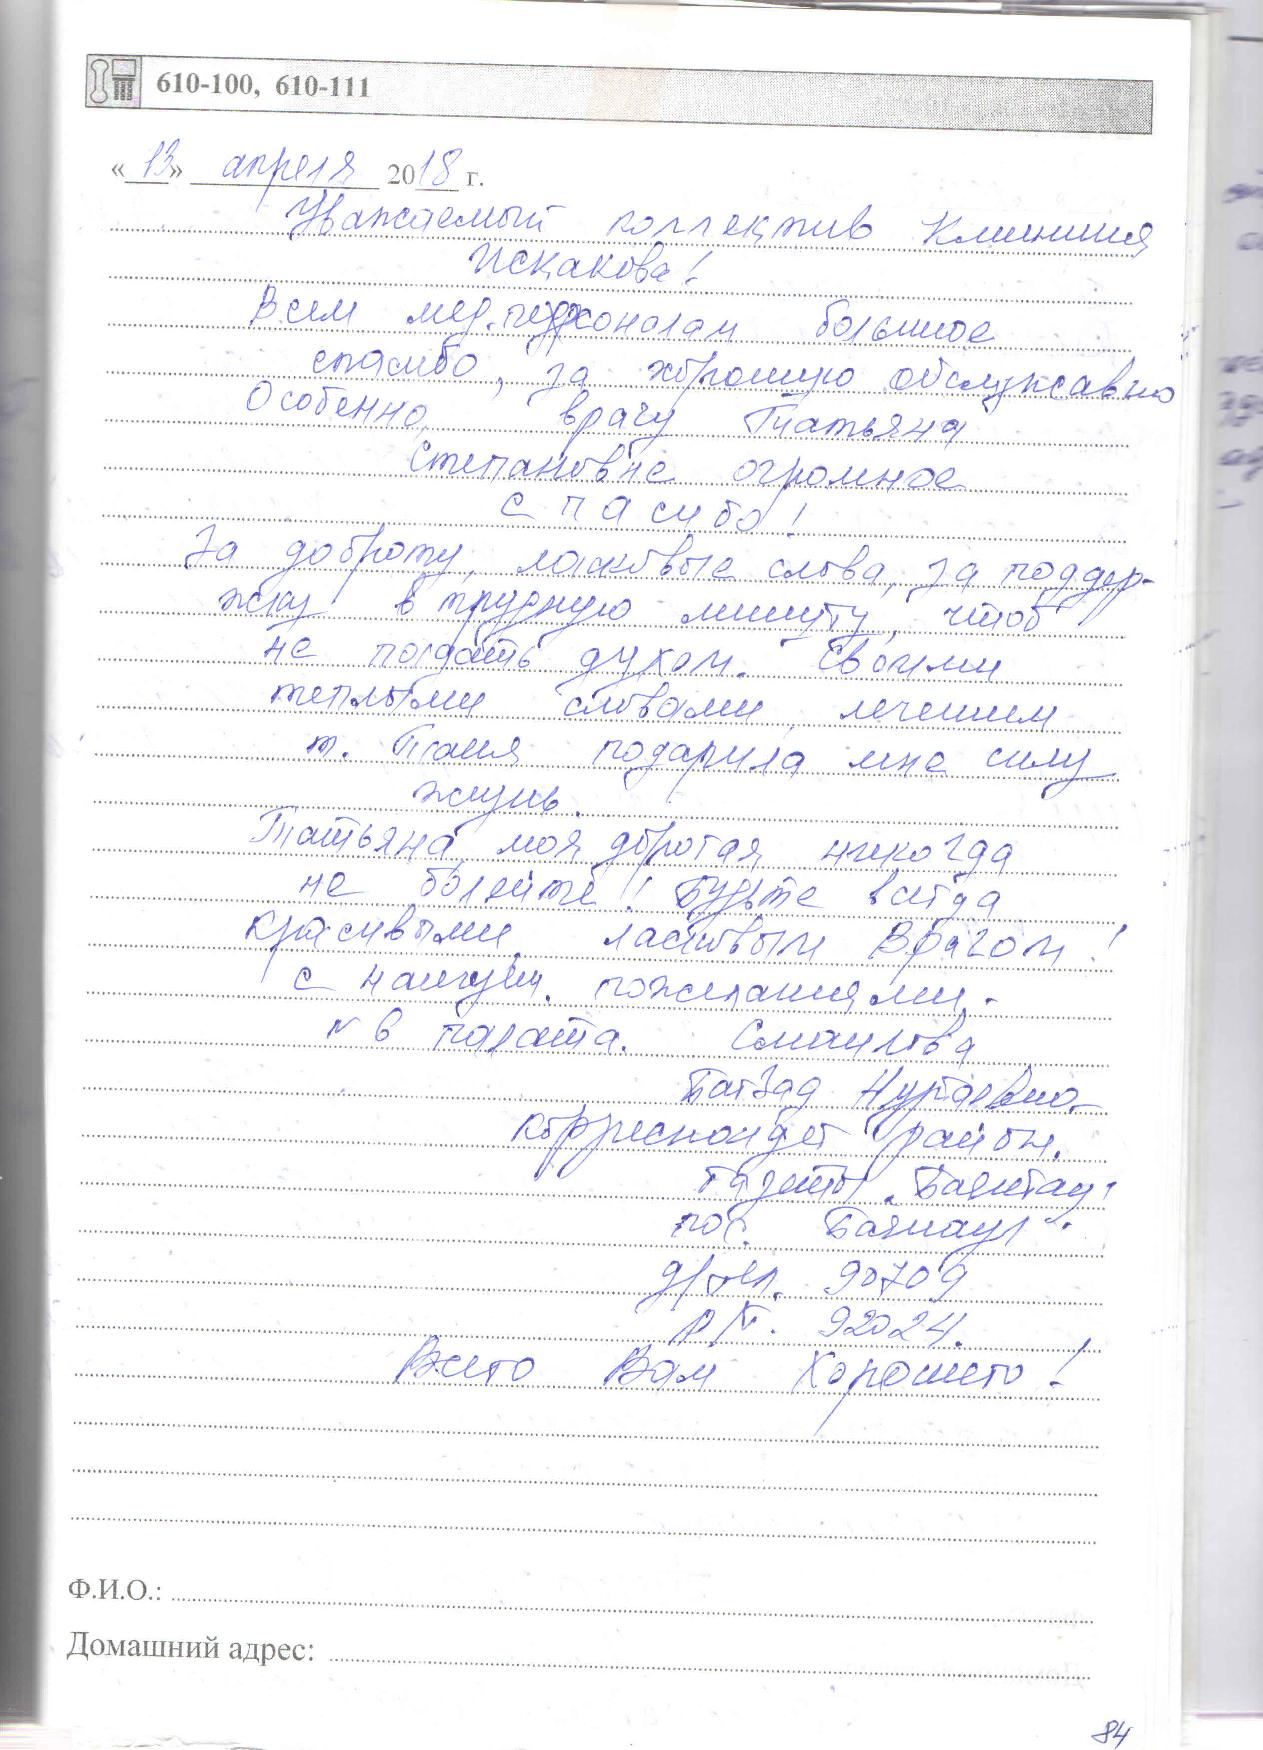 610-100, 610-111
«13» апреля 2018 г.
Уважаемый коллектив Клиники
Искакова!
Всем мед. персоналам большое
спасибо, за хорошую обслуживно
Особенно, врачу Татьяна
Степановне огромное
спасибо!
За доброту, ласковые слова, за поддер-
жку в трудную минуту, чтоб
не падать духом. Своими
теплыми словами, лечением
т. Таня подарила мне силу
жизнь.
Татьяна моя дорогая никогда
не болейте! Будьте всегда
красивыми, ласковым Врачом!
с наилучш. пожеланиями.
№ 6 палата. Смаилова
Нургаевна
корреспондет район.
газеты „Баянтау"
пос. Баянаул.
д/тел. 90709
р/т. 92024.
Всего Вам Хорошего!
Ф.И.О.:
Домашний адрес:
84